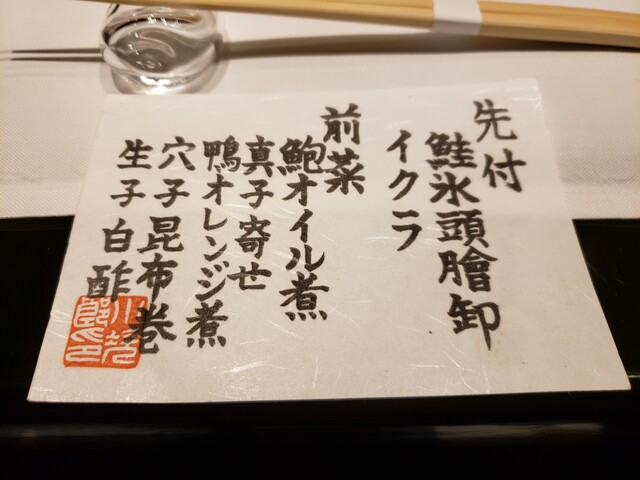 先付
鮭氷頭膾卸
イクラ
前菜
鮑オイル煮
真子寄せ
鴨オレンジ煮
穴子昆布巻
生子白酢